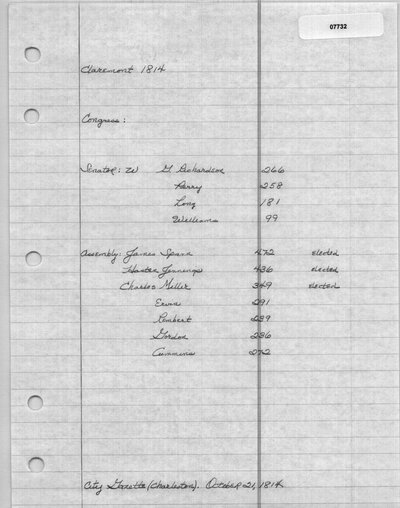 07732
Claremont 1814
Congress:
Senator: W G. Richardson 266
Perry 258
Long 181
Williams 99
Assembly: James Spann 472 elected
Jennings 436 elected
Charles Miller 349 elected
Ervin 291
Rembert 239
Gordon 236
Cummins 272
City Gazette (Charleston). October 21, 1814